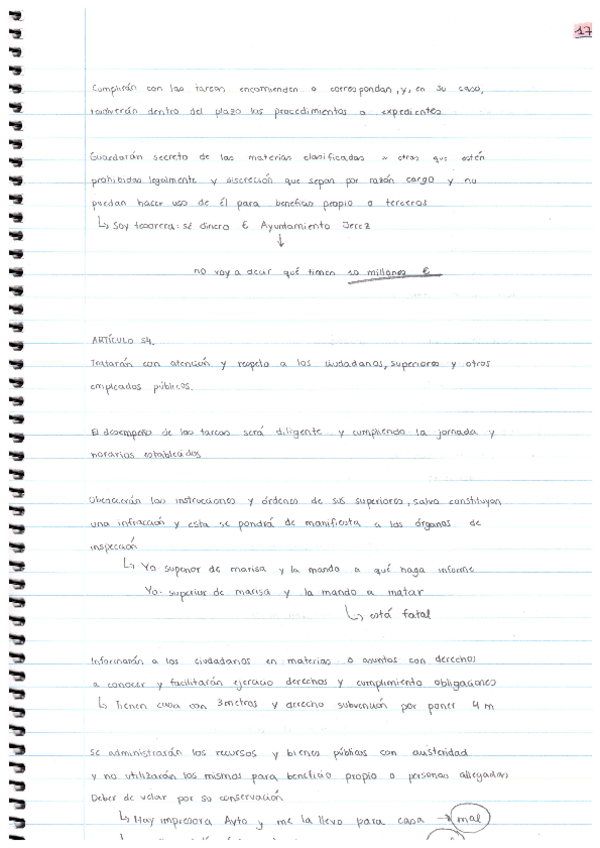 17
Cumplirán con las tareas encomienden o correspondan, y, en su caso,
resolverán dentro del plazo los procedimientos o expedientes
Guardarán secreto de las materias clasificadas u otras que estén
prohibidas legalmente y discreción que sepan por razón cargo y no
puedan hacer uso de él para beneficio propio o terceros
↳ Soy tesorera: sé dinero € Ayuntamiento Jerez
↓
no voy a decir qué tienen 10 millones €
ARTÍCULO 54.
Tratarán con atención y respeto a los ciudadanos, superiores y otros
empleados públicos.
El desempeño de las tareas será diligente y cumpliendo la jornada y
horarios establecidos
Obedecerán las instrucciones y órdenes de sus superiores, salvo constituyan
una infracción y esta se pondrá de manifiesta a los órganos de
inspección
↳ Yo superior de marisa y la mando a qué haga informe
Yo superior de marisa y la mando a matar
↳ está fatal
Informarán a los ciudadanos en materias o asuntos con derechos
a conocer y facilitarán ejercicio derechos y cumplimiento obligaciones
↳ Tienen casa con 3 metros y derecho subvención por poner 4 m
Se administrarán los recursos y bienes públicos con austeridad
y no utilizarán los mismos para beneficio propio o personas allegadas
Deber de velar por su conservación
↳ Hay impresora Ayto y me la llevo para casa → mal